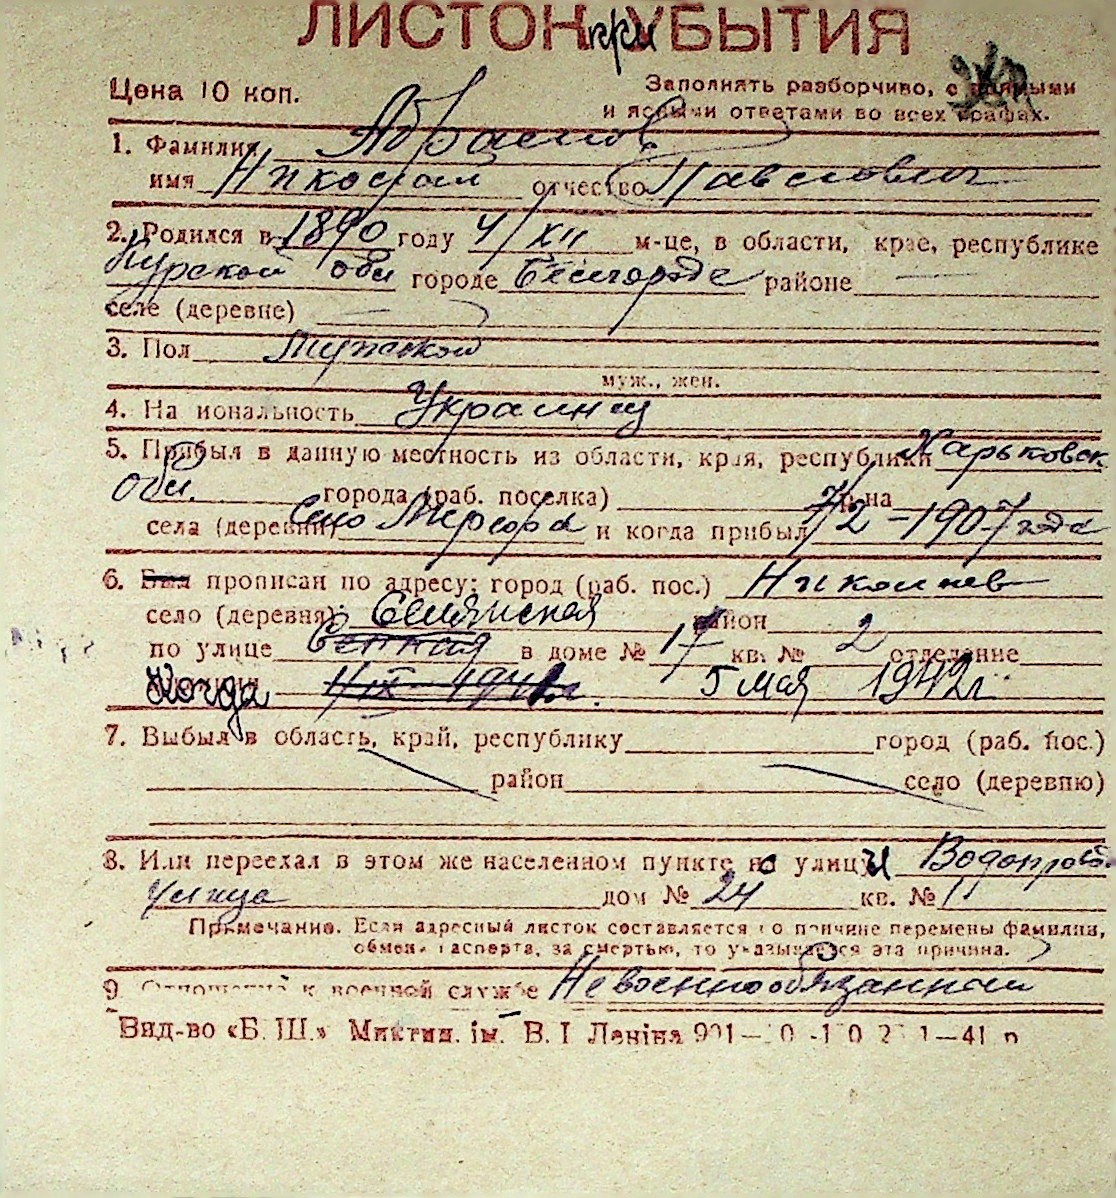 ЛИСТОК при УБЫТИЯ
Цена 10 коп.
Заполнять разборчиво, с полными
и ясными ответами во всех графах.
1. Фамилия Абрамов
имя Николай отчество Павлович
2. Родился в 1890 году 4/XII м-це, в области, крае, республике
Курской обл городе Белгороде районе
селе (деревне)
3. Пол Мужской
муж., жен.
4. Национальность Украинец
5. Прибыл в данную местность из области, края, республики Харьковск
обл. города (раб. поселка) р-на
села (деревни) село Мерефа и когда прибыл 7/2 - 1907 года
6. Был прописан по адресу: город (раб. пос.) Николаев
село (деревня) район
по улице Сенная в доме № 17 кв. № 2 отделение
Когда 5 мая 1942г.
7. Выбыл в область, край, республику город (раб. пос.)
район село (деревню)
8. Или переехал в этом же населенном пункте на улицу Водопров
улица дом № 24 кв. № 1
Примечание. Если адресный листок составляется по причине перемены фамилии,
обмена паспорта, за смертью, то указывается эта причина.
9. Отношение к военной службе Невоеннообязанный
Вид-во «Б. Ш.» Миктип. ім. В. І Леніна